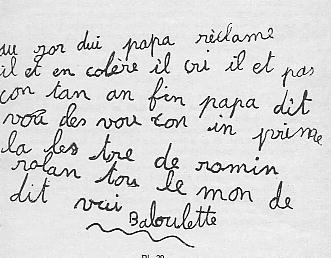 au jor dui papa rèclame
il et en colère il cri il et pas
con tan an fin papa dit
vou des vou ton in prime
la les tre de romin
ralan tou le mon de
dit vui
Baloulette